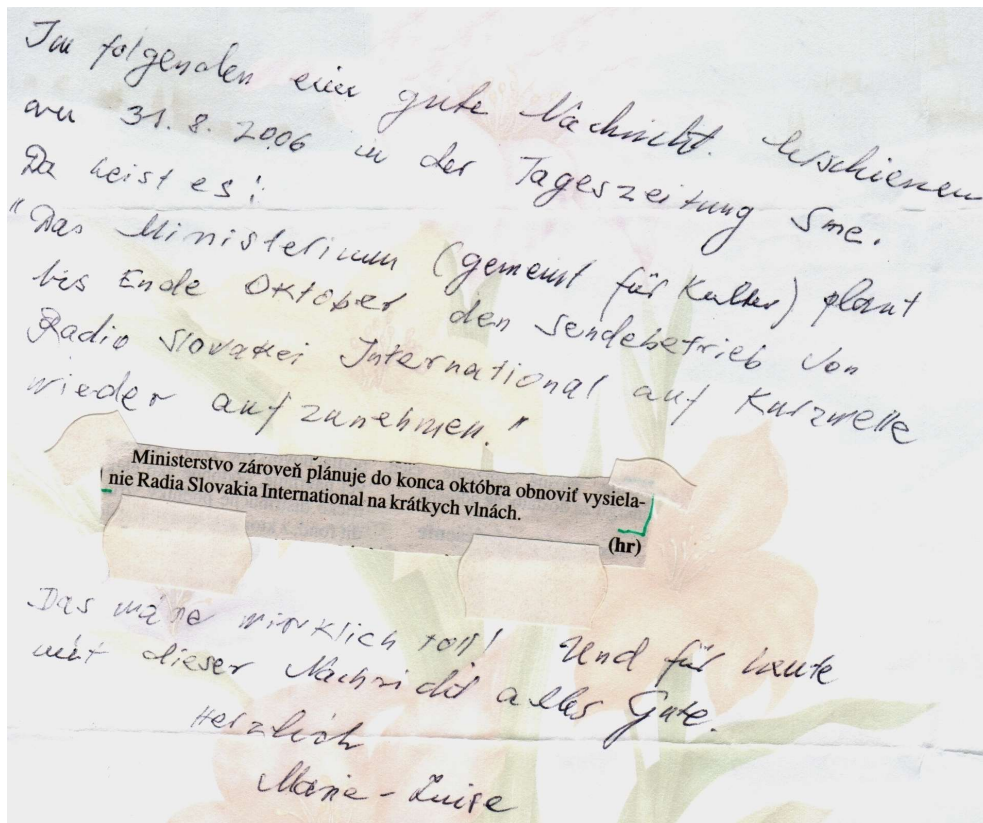 Im folgenden eine gute Nachricht. Erschienen
am 31.8.2006 in der Tageszeitung Sme.
Da heist es:
"Das Ministerium (gemeint für Kultur) plant
bis Ende Oktober den Sendebetrieb von
Radio Slovakei International auf Kurzwelle
wieder aufzunehmen."
Ministerstvo zároveň plánuje do konca októbra obnoviť vysiela-
nie Radia Slovakia International na krátkych vlnách.
(hr)
Das wäre wirklich toll! Und für heute
mit dieser Nachricht alles Gute.
Herzlich
Marie-Luise